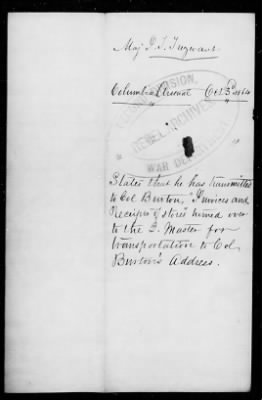 Maj. J. T. Trezevant
Columbia Arsenal Oct. 3d 1864
" "
REBEL ARCHIVES
WAR DEPARTMENT
States that he has transmitted
to Col Burton, Invoices and
Receipts of stores turned over
to the Q. Master for
transportation to Col
Burton's Address.